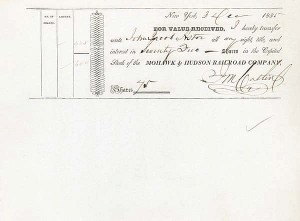 NO. OF SHARES.
New York, 3 Dec 1835
FOR VALUE RECEIVED, I hereby transfer
unto John Jacob Astor all my right, title, and
interest in Seventy five Shares in the Capital
Stock of the MOHAWK & HUDSON RAILROAD COMPANY.
Shares 75